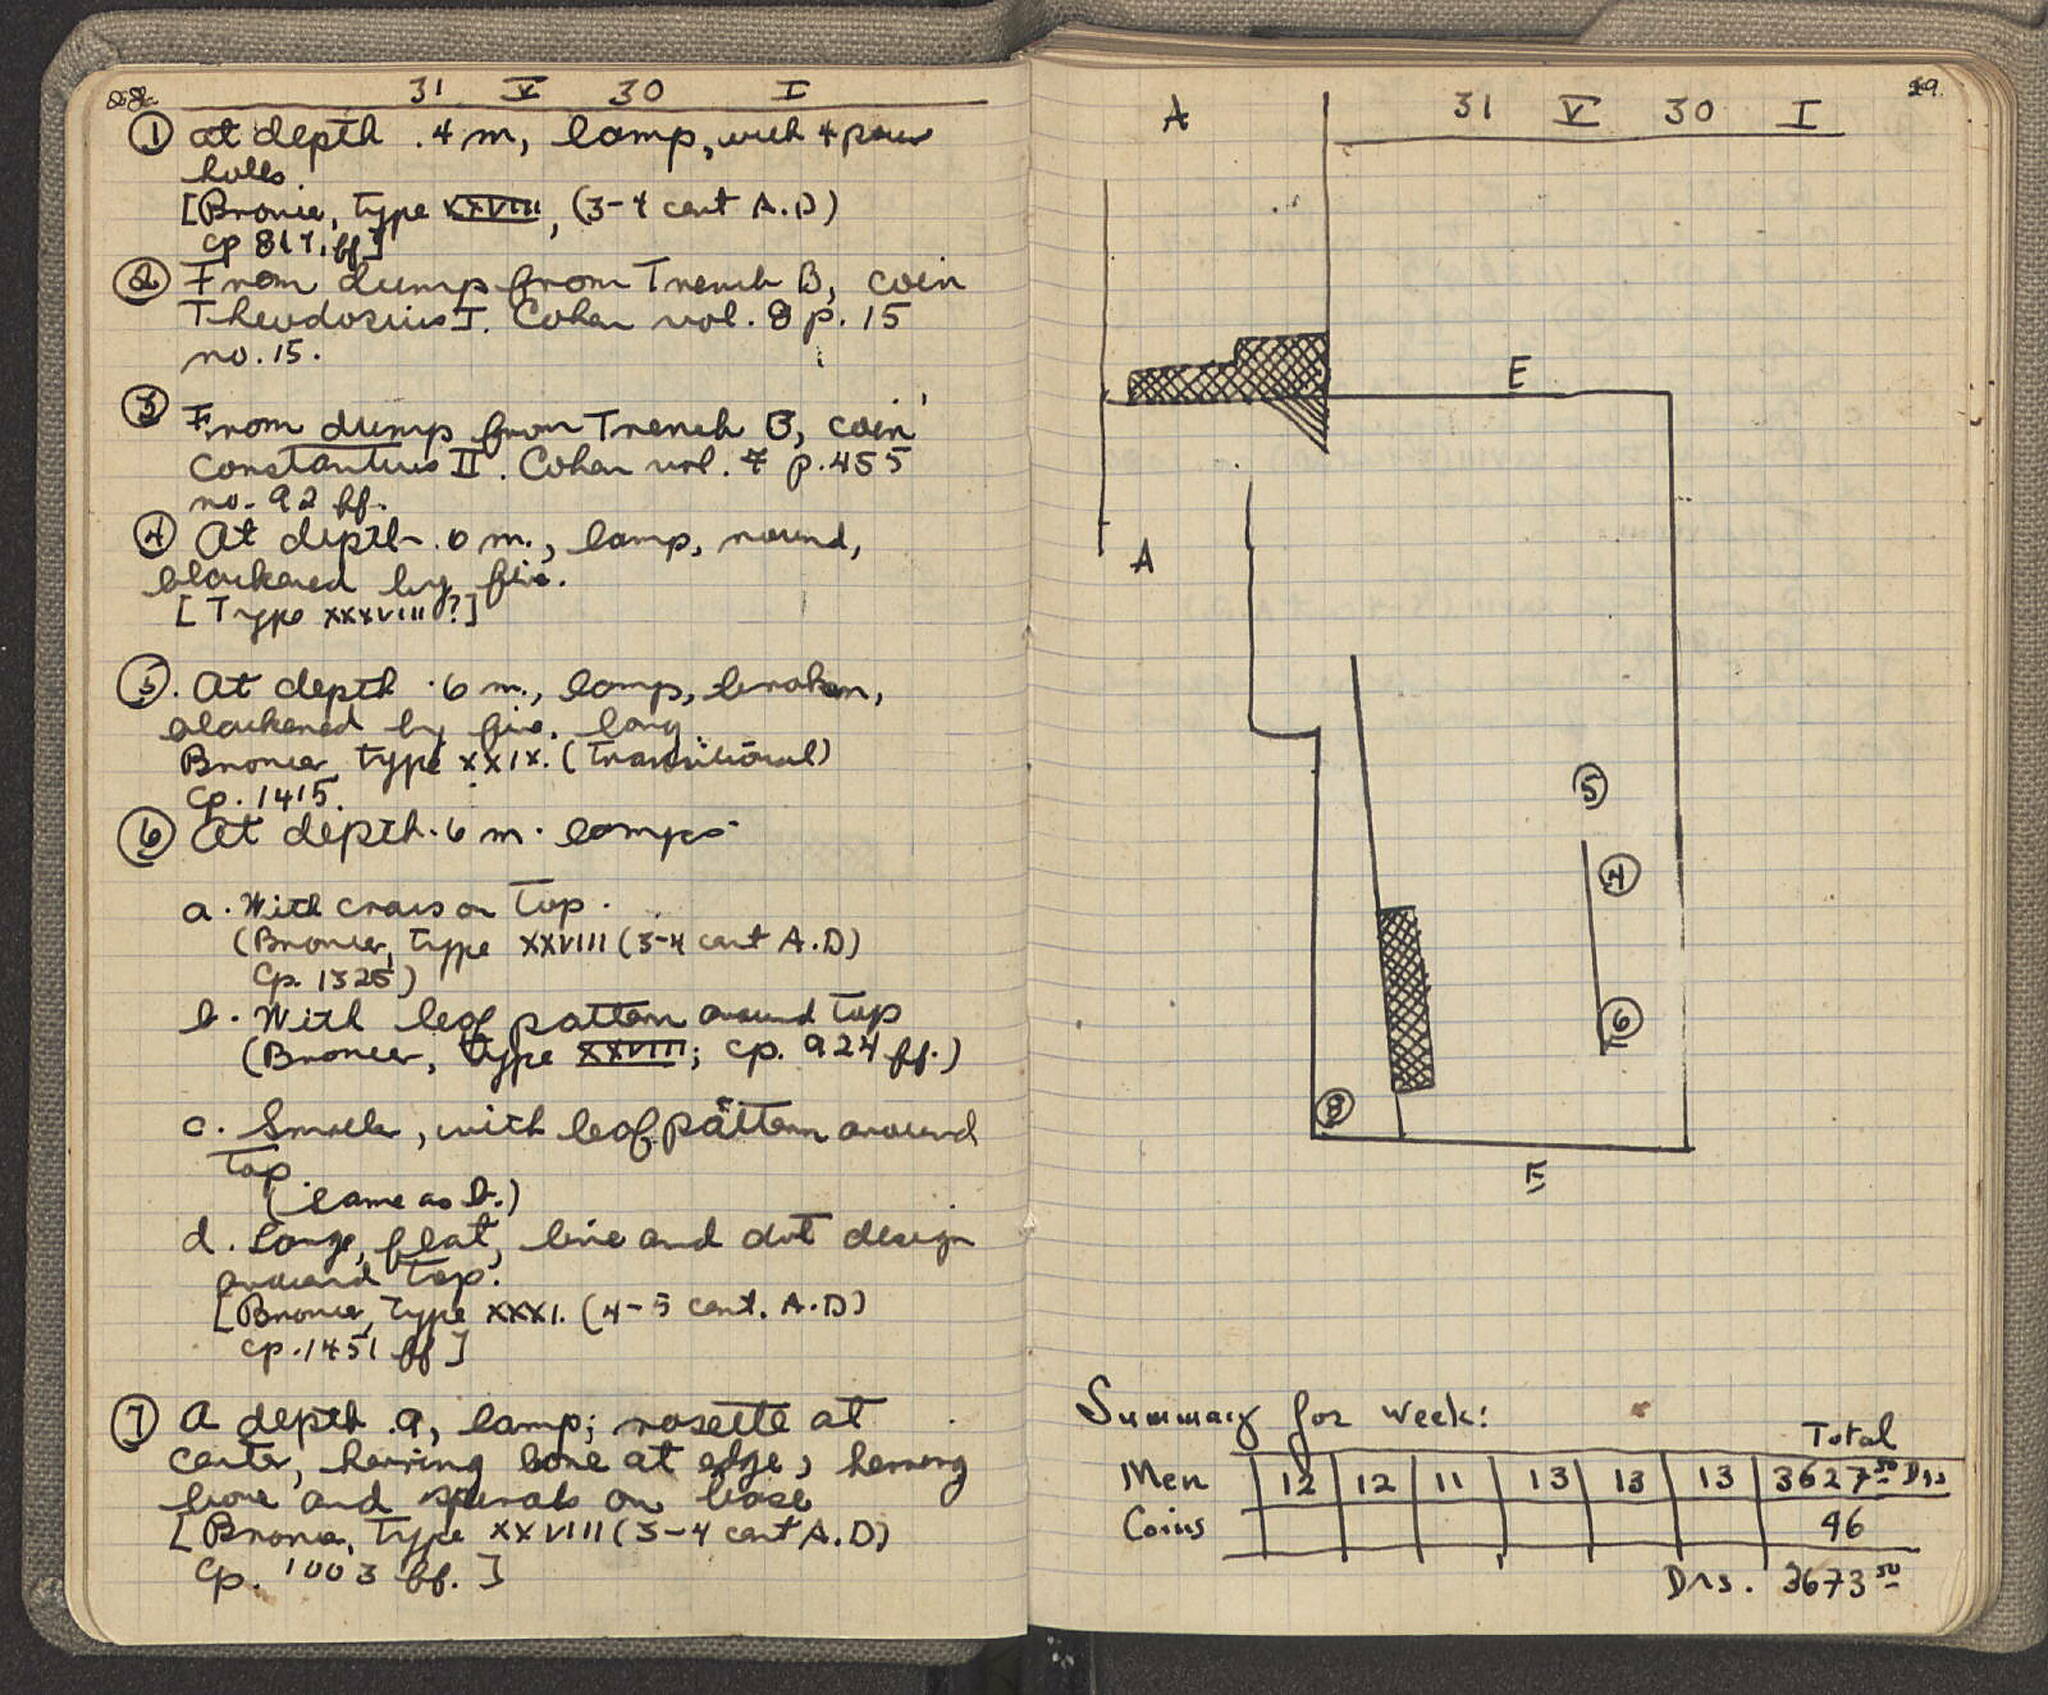 31 V 30 I
① at depth .4 m, lamp, with 4 paw
holes.
[Broneer, type XXVIII, (3-4 cent A.D)
cp 817. ff]
② From dump from Trench B, coin
Theodosius I. Cohen vol. 8 p. 15
no. 15.
③ From dump from Trench B, coin
Constantius II. Cohen vol. 7 p. 455
no. 92 ff.
④ At depth .6 m., lamp, round,
blackened by fire.
[Type XXXVIII?]
⑤. At depth .6 m., lamp, broken,
blackened by fire. long.
Broneer type XXIX. (transitional)
cp. 1415.
⑥ At depth .6 m. lamps
a. With cross on top.
(Broneer, type XXVIII (3-4 cent A.D)
cp. 1325)
b. With leaf pattern around top
(Broneer, type XXVIII; cp. 924 ff.)
c. Smaller, with leaf pattern around
top.
(same as b.)
d. Large, flat, line and dot design
around top.
[Broneer, type XXXI. (4-5 cent. A.D)
cp. 1451 ff]
⑦ A depth .9, lamp; rosette at
center, herring bone at edge, herring
bone and spirals on base
[Broneer, type XXVIII (3-4 cent A.D)
cp. 1003 ff. ]
29.
A 31 V 30 I
E
A
⑤
④
⑥
⑧
E
Summary for week:
Total
Men 12 12 11 13 13 13 3627 50 Drs
Coins 46
Drs. 3673 50